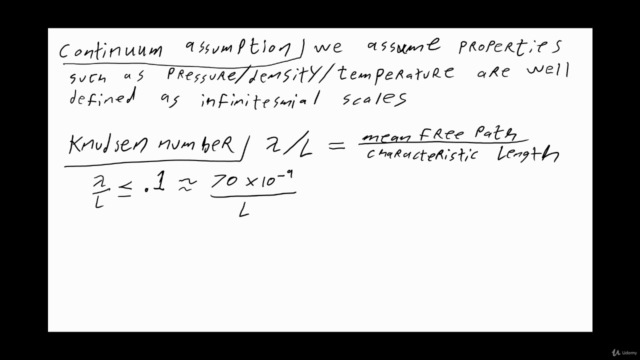 Continuum assumption, we assume properties
such as pressure/density/temperature are well
defined as infinitesmial scales
Knudsen number, λ/L = mean free path / characteristic length
λ/L ≤ .1 ≈ 70 × 10⁻⁹ / L
Udemy